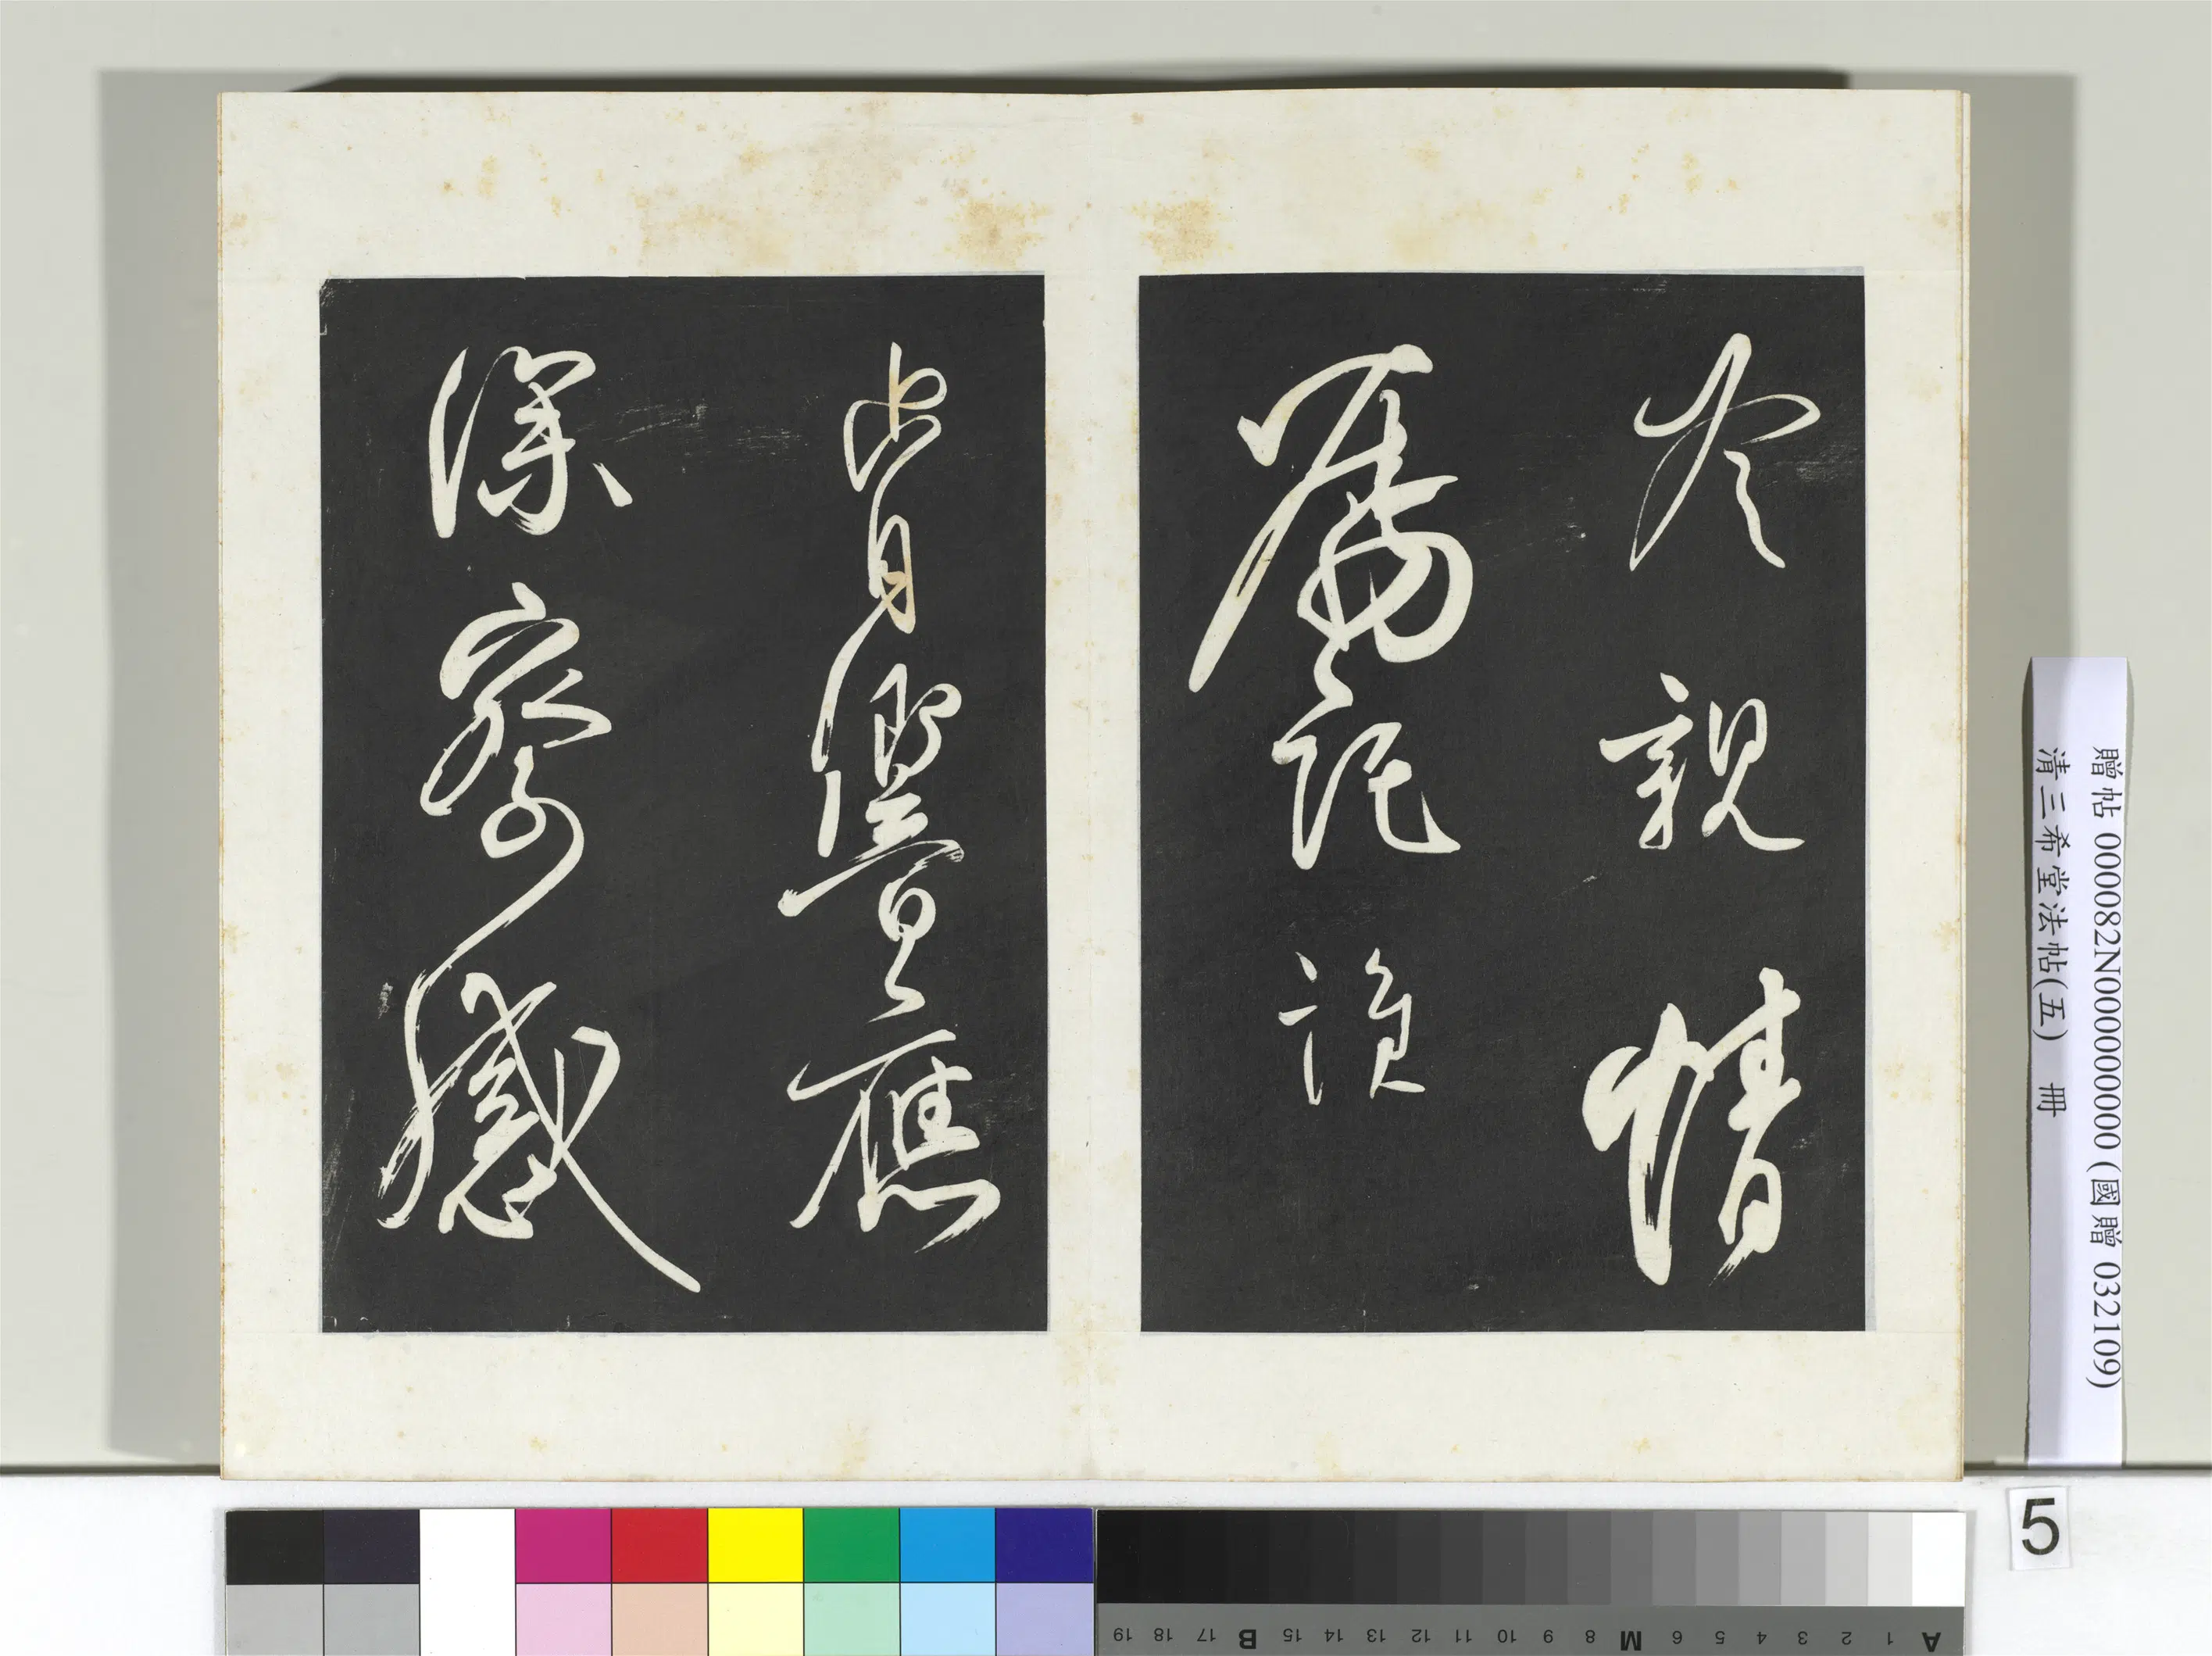 親情
屬託
響應
深察感
贈帖 000082N000000000 (國贈 032109)
清三希堂法帖(五) 冊
5
A 1 2 3 4 5 6 M 8 9 10 11 12 13 14 15 B 17 18 19